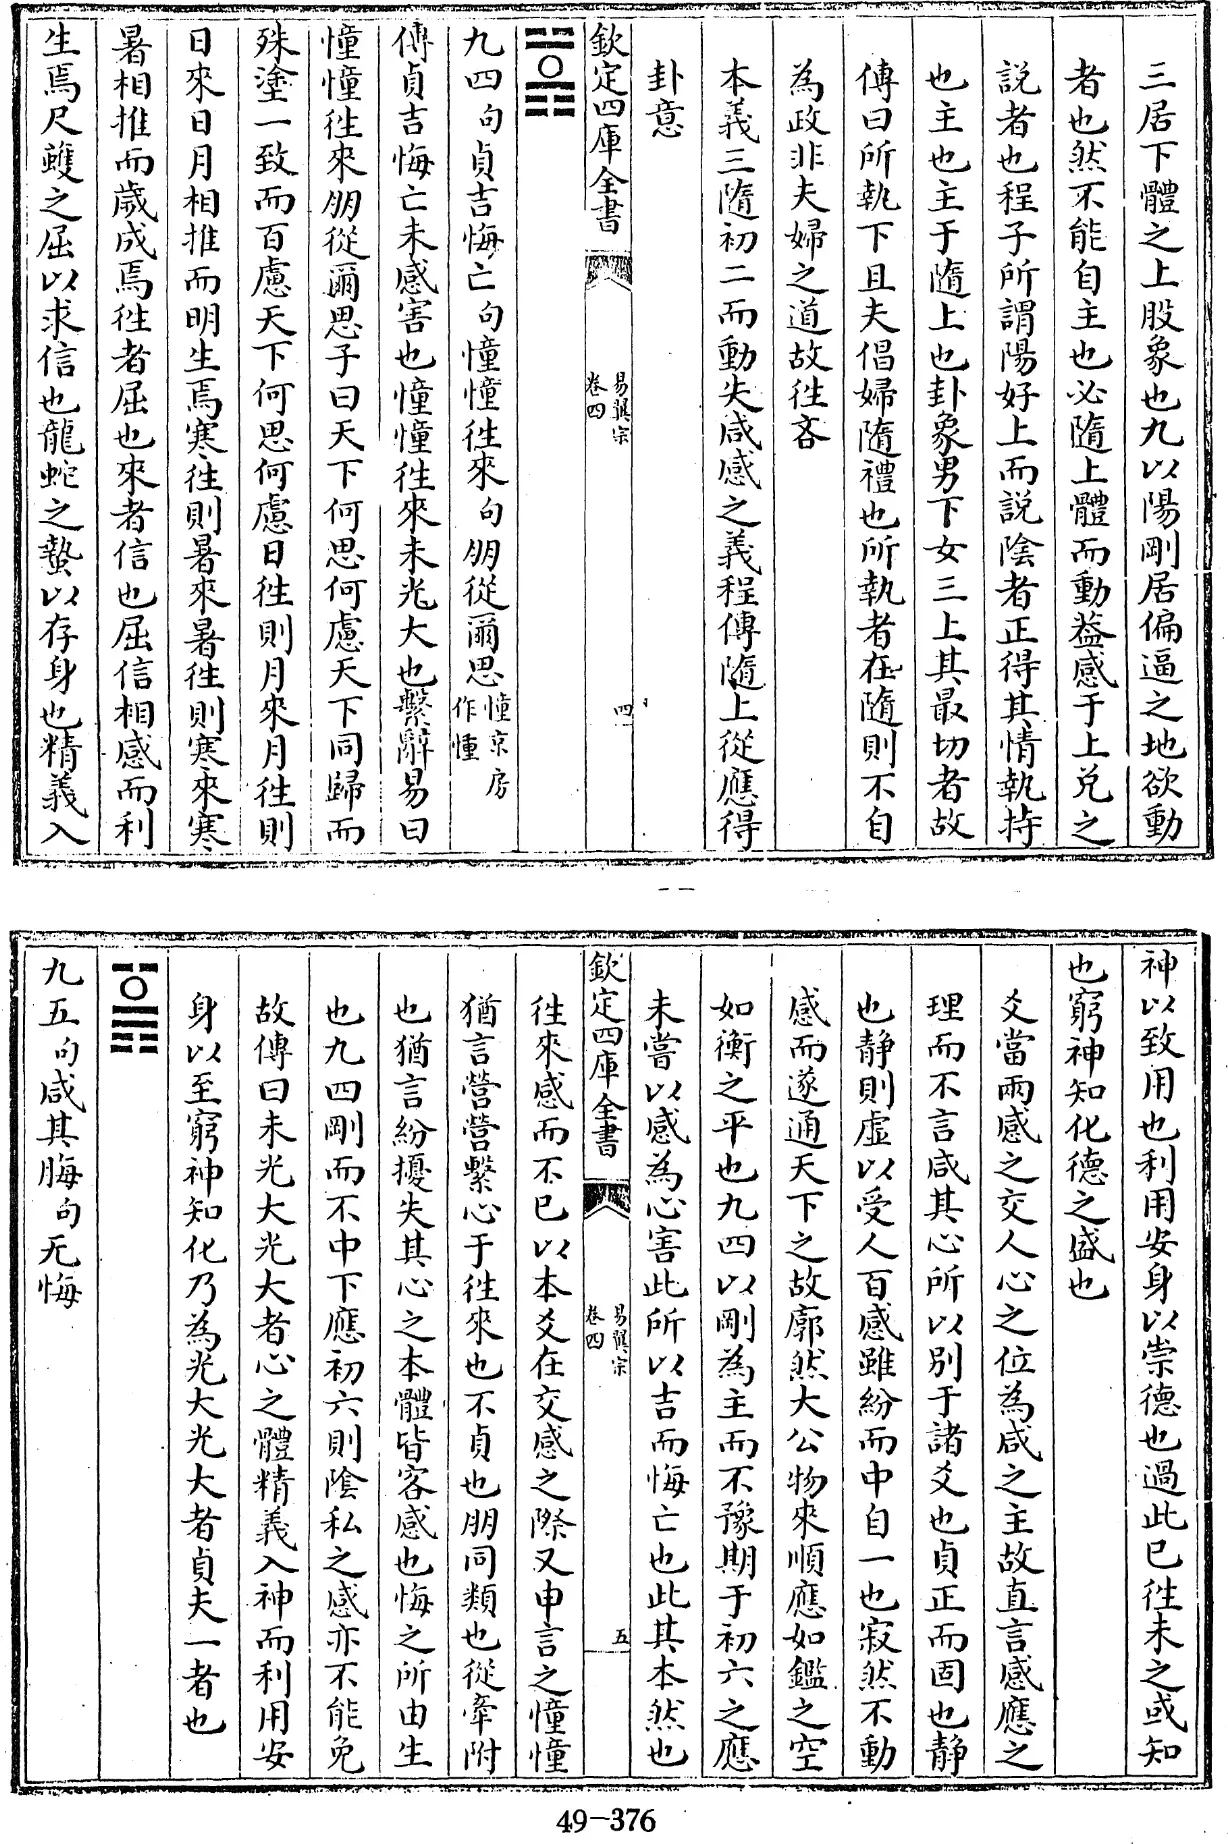 三居下體之上股象也九以陽剛居偏逼之地欲動
者也然不能自主也必隨上體而動葢感于上兌之
說者也程子所謂陽好上而說陰者正得其情執持
也主也主于隨上也卦象男下女三上其最切者故
傳曰所執下且夫倡婦隨禮也所執者在隨則不自
為政非夫婦之道故徃吝
本義三隨初二而動失咸感之義程傳隨上從應得
卦意
欽定四庫全書
易翼宗
卷四
四
九四句貞吉悔亡句憧憧徃來句朋從爾思憧京房
作㥫
傳貞吉悔亡未感害也憧憧徃來未光大也繫辭易曰
憧憧徃來朋從爾思子曰天下何思何慮天下同歸而
殊塗一致而百慮天下何思何慮日徃則月來月徃則
日來日月相推而明生焉寒徃則暑來暑徃則寒來寒
暑相推而歲成焉徃者屈也來者信也屈信相感而利
生焉尺蠖之屈以求信也龍蛇之蟄以存身也精義入
神以致用也利用安身以崇德也過此已徃未之或知
也窮神知化德之盛也
爻當兩感之交人心之位為咸之主故直言感應之
理而不言咸其心所以别于諸爻也貞正而固也靜
也靜則虛以受人百感雖紛而中自一也寂然不動
感而遂通天下之故廓然大公物來順應如鑑之空
如衡之平也九四以剛為主而不豫期于初六之應
未嘗以感為心害此所以吉而悔亡也此其本然也
欽定四庫全書
易翼宗
卷四
五
徃來感而不已以本爻在交感之際又申言之憧憧
猶言營營繫心于徃來也不貞也朋同類也從牽附
也猶言紛擾失其心之本體皆客感也悔之所由生
也九四剛而不中下應初六則陰私之感亦不能免
故傳曰未光大光大者心之體精義入神而利用安
身以至窮神知化乃為光大光大者貞夫一者也
九五句咸其脢句无悔
49-376